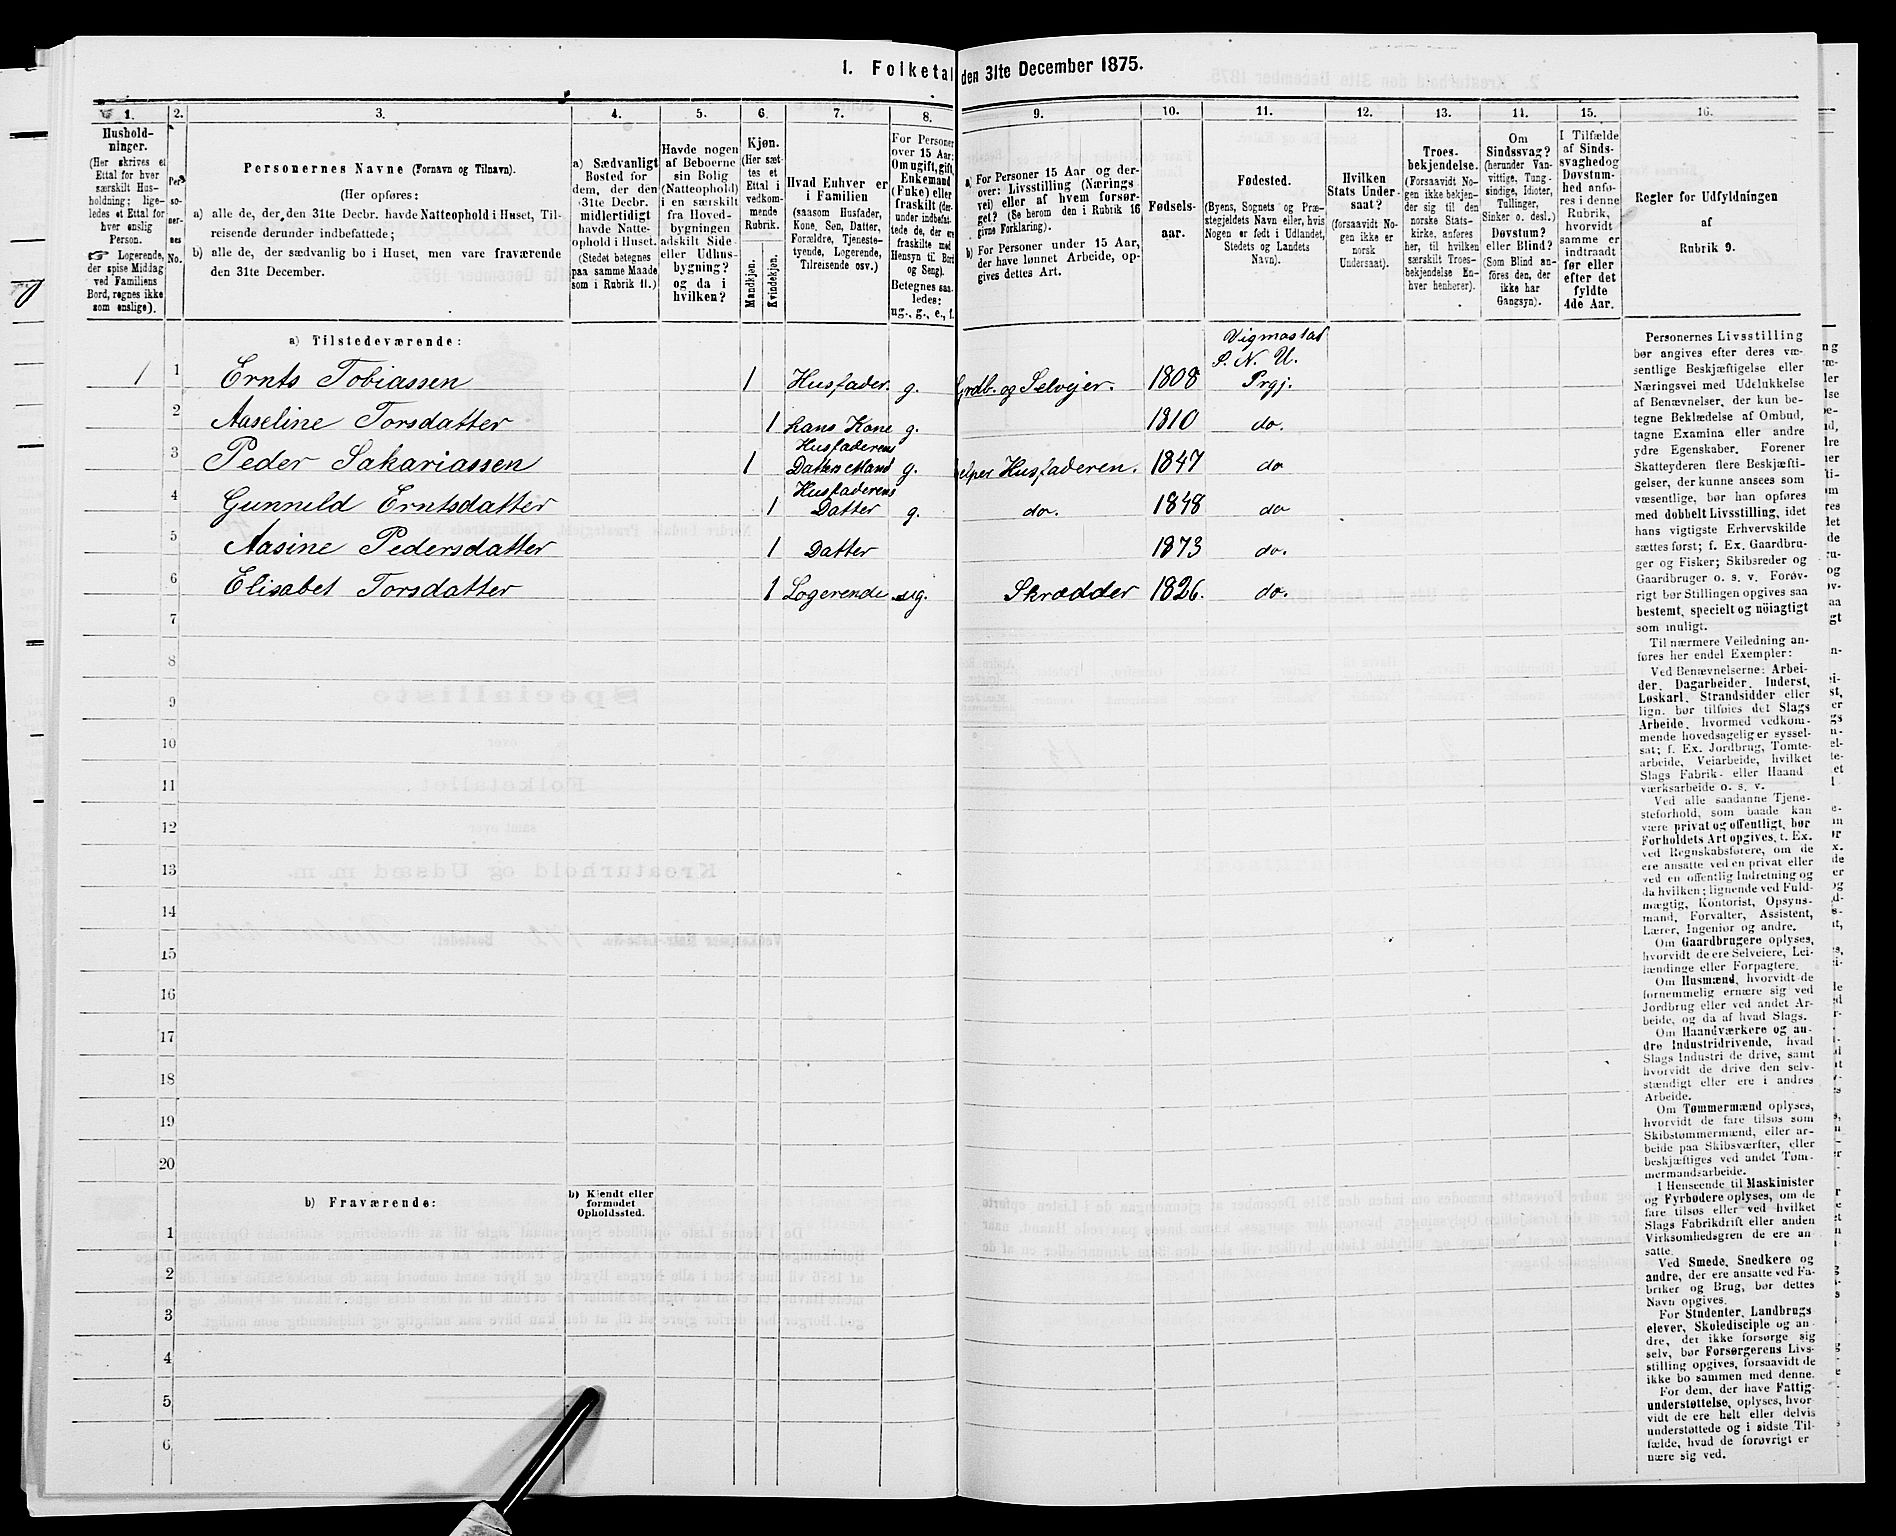 1. Folketal den 31te December 1875.
1. 2. 3. 4. 5. 6. 7. 8. 9. 10. 11. 12. 13. 14. 15. 16.
Hushold-
ninger.
(Her skrives et
Ettal for hver
særskilt Hus-
holdning; lige-
ledes et Ettal for
hver enslig
Person.
Logerende,
der spise Middag
ved Familiens
Bord, regnes ikke
som enslige).
Per-
so-
ner-
nes
No.
Personernes Navne (Fornavn og Tilnavn).
(Her opføres:
a) alle de, der den 31te Decbr. havde Natteophold i Huset, Til-
reisende derunder indbefattede;
b) alle de, der sædvanlig bo i Huset, men vare fraværende
den 31te December.
a) Sædvanligt
Bosted for
dem, der den
31te Decbr.
midlertidigt
havde Natte-
ophold i Huset.
(Stedet betegnes
paa samme Maade
som i Rubrik 11.)
Havde nogen
af Beboerne
sin Bolig
(Natteophold)
i en særskilt
fra Hoved-
bygningen
adskilt Side-
eller Udhus-
bygning?
og da i
hvilken?
Kjøn.
(Her sæt-
tes et
Ettal i
vedkom-
mende
Rubrik.
Mandkjøn.
Kvindekjøn.
Hvad Enhver er
i Familien
(saasom Husfader,
Kone, Søn, Datter,
Forældre, Tjeneste-
tyende, Logerende,
Tilreisende osv.)
For Personer
over 15 Aar:
Om ugift, gift,
Enkemand
(Enke) eller
fraskilt (der-
under indbefat-
tede de, der ere
fraskilte med
Hensyn til Bord
og Seng).
Betegnes saa-
ledes:
ug., g., e., f.
a) For Personer 15 Aar og der-
over: Livsstilling (Nærings-
vei) eller af hvem forsør-
get? (Se herom den i Rubrik 16
givne Forklaring).
b) For Personer under 15 Aar,
der have lønnet Arbeide, op-
gives dettes Art.
Fødsels-
aar.
Fødested.
(Byens, Sognets og Præ-
stegjeldets Navn eller, hvis
Nogen er født i Udlandet,
Stedets og Landets
Navn).
Hvilken
Stats Under-
saat?
(forsaavidt No-
gen ikke er
norsk
Undersaat).
Troes-
bekjendelse.
(Forsaavidt No-
gen ikke bekjen-
der sig til den
norske Stats-
kirke, anføres
her, til hvilken
særskilt Troes-
bekjendelse En-
hver henhører).
Om
Sindssvag?
(herunder Van-
vittige, Tung-
sindige, Idioter,
Tullinger,
Sinker o. desl.)
Døvstum?
eller Blind?
(Som Blind an-
føres den, der
ikke har
Gangsyn).
I Tilfælde
af Sinds-
svaghed og
Døvstum-
hed anfø-
res i denne
Rubrik,
hvorvidt
samme er
indtraadt
før eller
efter det
fyldte
4de Aar.
Regler for Udfyldningen
af
Rubrik 9.
a) Tilstedeværende:
Vigmostad
S. N. U.
1 1 Ernts Tobiassen 1 Husfader. g. Grdb. og Selvejer. 1808 Prgj.
2 Aaseline Torsdatter 1 hans Kone g. 1810 do.
Husfaderens
3 Peder Sakariassen 1 Daters Mand g. helper Husfaderen. 1847 do
Husfaderens
4 Gunneld Erntsdatter 1 Datter g. do. 1848 do
5 Aasine Pedersdatter 1 Datter 1873 do.
6 Elisabet Torsdatter 1 Logerende ug. Skrædder 1826. do.
7
8
9
10
11
12
13
14
15
16
17
18
19
20
b) Fraværende:
b) Kjendt eller
formodet
Opholdssted.
1
2
3
4
5
6
Personernes Livsstilling
bør angives efter deres væ-
sentlige Beskjæftigelse eller
Næringsvei med Udelukkelse
af Benævnelser, der kun be-
tegne Beklædelse af Ombud,
tagne Examina eller andre
ydre Egenskaber. Forener
Skatteyderen flere Beskjæfti-
gelser, der kunne ansees som
væsentlige, bør han opføres
med dobbelt Livsstilling, idet
hans vigtigste Erhvervskilde
sættes først; f. Ex. Gaardbru-
ger og Fisker; Skibsreder og
Gaardbruger o. s. v. Forøv-
rigt bør Stillingen opgives saa
bestemt, specielt og nöiagtigt
som muligt.
Til nærmere Veiledning an-
føres her endel Exempler:
Ved Benævnelserne: Arbei-
der, Dagarbeider, Inderst,
Løskarl, Strandsidder eller
lign. bør tilføies det Slags
Arbeide, hvormed vedkom-
mende hovedsagelig er syssel-
sat; f. Ex. Jordbrug, Tomte-
arbeide, Veiarbeide, hvilket
Slags Fabrik- eller Haand-
værksarbeide o. s. v.
Ved alle saadanne Tjene-
steforhold, som baade kan
være privat og offentligt, bør
Forholdets Art opgives, t. Ex.
ved Regnskabsførere, om de
ere ansatte ved en privat eller
ved en offentlig Indretning og
da hvilken; lignende ved Fuld-
mægtig, Kontorist, Opsyns-
mand, Forvalter, Assistent,
Lærer, Ingeniør og andre.
Om Gaardbrugere oplyses,
hvorvidt de ere Selveiere, Lei-
lændinge eller Forpagtere.
Om Husmænd, hvorvidt de
fornemmelig ernære sig ved
Jordbrug eller ved andet Ar-
beide, og da af hvad Slags.
Om Haandværkere og an-
dre Industridrivende, hvad
Slags Industri de drive, samt
hvorvidt de drive den selv-
stændigt eller ere i andres
Arbeide.
Om Tømmermænd oplyses,
hvorvidt de fare tilsøs som
Skibstømmermænd, eller ar-
beide paa Skibsværfter, eller
beskjæftiges ved andet Tøm-
mermandsarbeide.
I Henseende til Maskinister
og Fyrbødere oplyses, om de
fare tilsøs eller ved hvilket
Slags Fabrikdrift eller anden
Virksomhedsgren de ere an-
satte.
Ved Smede, Snedkere og
andre, der ere ansatte ved Fa-
briker og Brug, bør dettes
Navn opgives.
For Studenter, Landbrugs-
elever, Skoledisciple og an-
dre, der ikke forsørge sig
selv, bør Forsørgerens Livs-
stilling opgives, forsaavidt de
ikke bo sammen med denne.
For dem, der have Fattig-
understøttelse, oplyses, hvor-
vidt de ere helt eller delvis
understøttede og i sidste Til-
fælde, hvad de forøvrigt er-
nære sig ved.